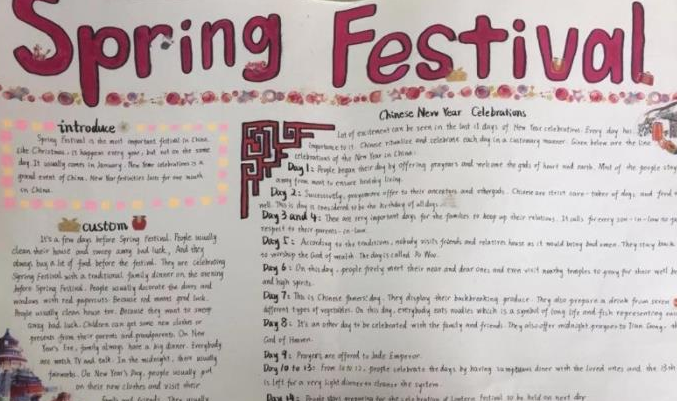 Spring Festival
introduce
Spring Festival is the most important festival in China.
Like Christmas, it happens every year, but not on the same
day. It usually comes in January. New Year celebrations is a
grand event of China. New Year festivities last for one month
in China.
custom
It's a few days before Spring Festival. People usually
clean their house and sweep away bad luck. And they
always buy a lot of food before the festival. They are celebrating
Spring Festival with a traditional family dinner on the evening
before Spring Festival. People usually decorate the doors and
windows with red papercuts. Because red means good luck.
People usually clean house too. Because they want to sweep
away bad luck. Children can get some new clothes or
presents from their parents and grandparents. On New
Year's Eve, family always have a big dinner. Everybody
are watch TV and talk. In the midnight, there usually
fireworks. On New Year's Day, people usually put
on their new clothes and visit their
family and friends. They usually
Chinese New Year Celebrations
Lot of excitement can be seen in the last 15 days of New Year celebrations. Every day has
importance to it. Chinese ritualize and celebrate each day in a customary manner. Given below are the
celebrations of the New Year in China.
Day 1: People began their day by offering prayers and welcome the gods of heaven and earth. Most of the people stay
away from meat to ensure healthy living.
Day 2: Successively, programme offer to their ancestors and Chinese are strict care-taker of dogs and feed
well. This day is considered to be the birthday of all dogs.
Day 3 and 4: They are very important days for the families to keep up their relations. It calls for every son-in-law to
respect to their parents-in-law.
Day 5: According to the traditions, nobody visits friends and relatives house as it would bring bad omen. They stay back
to worship the God of wealth. The day is called Po Woo.
Day 6: On this day, people freely meet their near and dear ones and even visit nearby temples to pray for their well
and high spirits.
Day 7: This is Chinese famers' day. They display their backbreaking produce. They also prepare a drink from seven
different types of vegetables. On this day, everybody eats noodles which is a symbol of long life and fish representing
Day 8: It's an other day to be celebrated with the family and friends. They also offer midnight prayers to Tian Gong, the
God of Heaven.
Day 9: Prayers are offered to Jade Emperor.
Day 10 to 13: From 10 to 12, people celebrate the days by having sumptuous dinner with the loved ones and the 13th
is left for a very light dinner to cleanse the system.
Day 14: People start preparing for the celebration of Lantern Festival to be held on next day